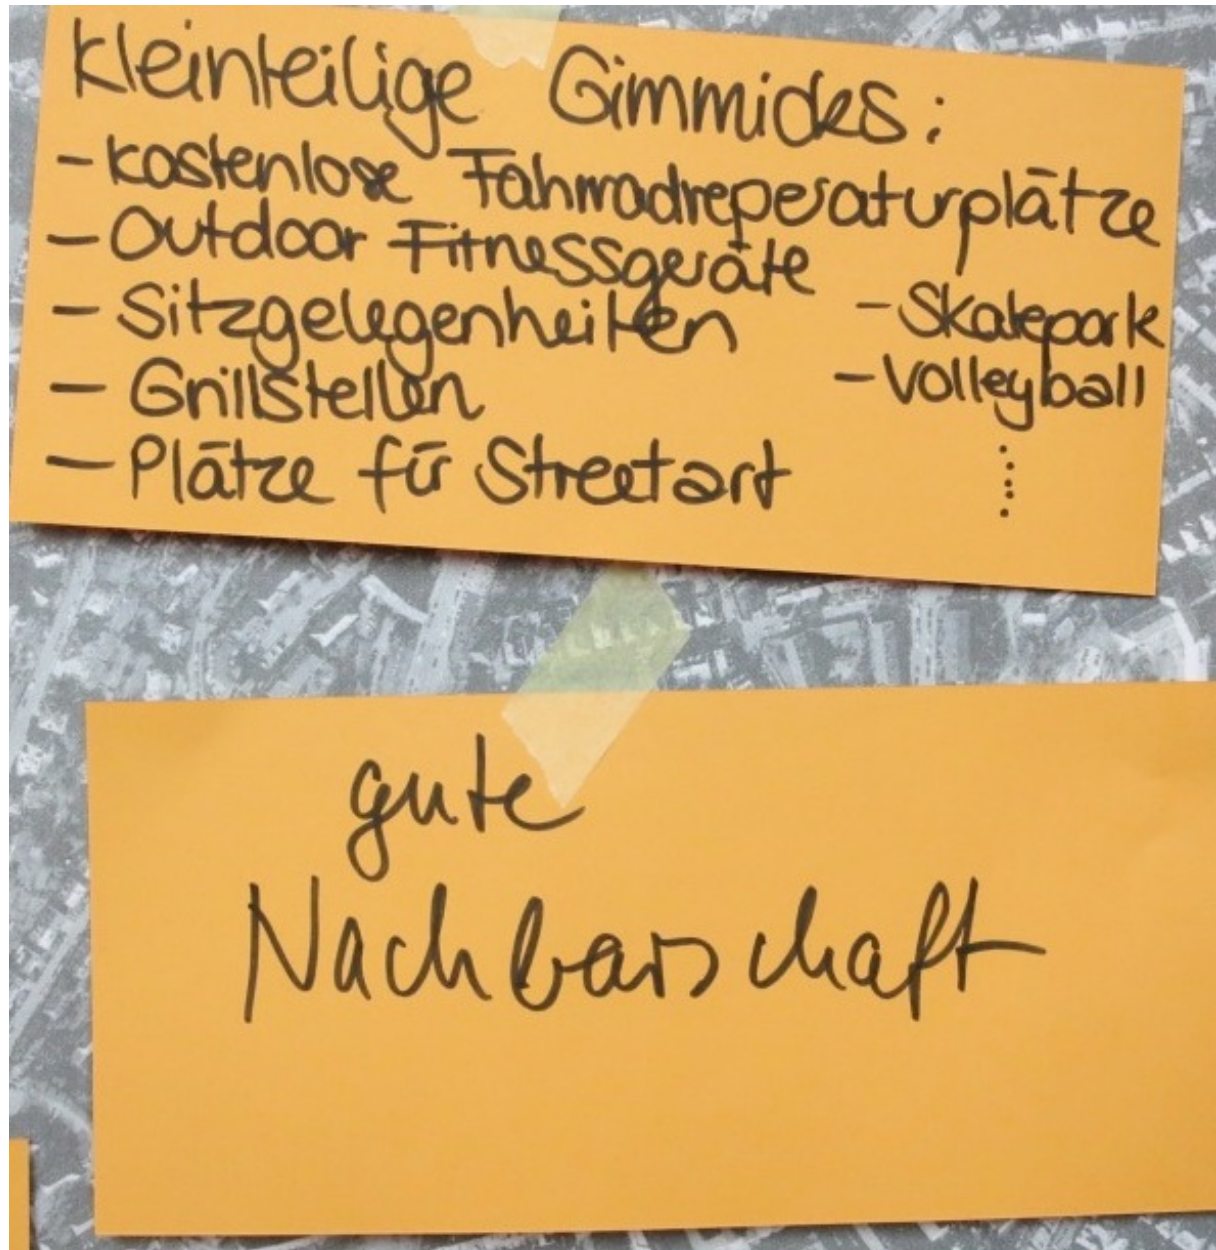 Kleinteilige Gimmicks:
- kostenlose Fahrradreperaturplätze
- Outdoor Fitnessgeräte
- Sitzgelegenheiten
- Grillstellen
- Plätze für Streetart
- Skatepark
- Volleyball
.....
gute
Nachbarschaft